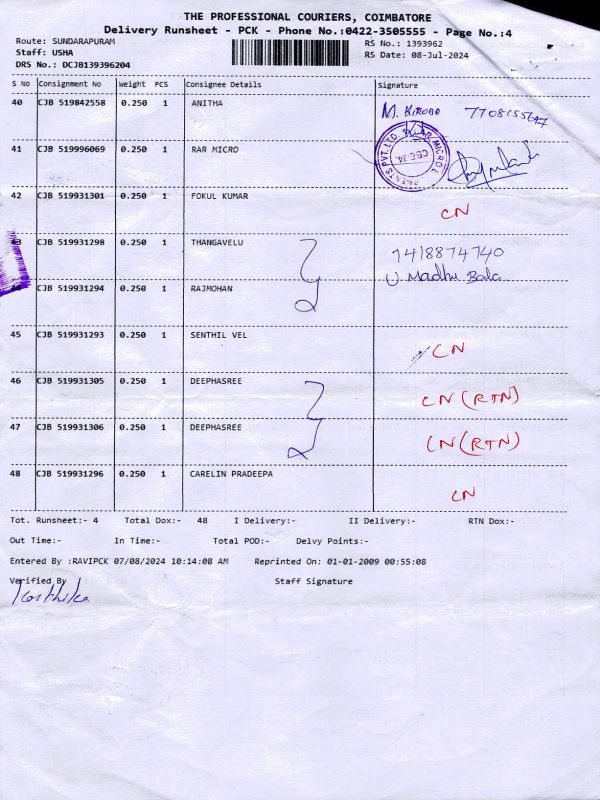 THE PROFESSIONAL COURIERS, COIMBATORE
Delivery Runsheet - PCK - Phone No.:0422-3505555 - Page No.:4
Route: SUNDARAPURAM
RS No.: 1393962
Staff: USHA
RS Date: 08-Jul-2024
DRS No.: DCJB139396204
S No Consignment No Weight PCS Consignee Details Signature
40 CJB 519842558 0.250 1 ANITHA M.
41 CJB 519996069 0.250 1 RAR MICRO
42 CJB 519931301 0.250 1 FOKUL KUMAR CN
43 CJB 519931298 0.250 1 THANGAVELU 7418874740
U Madhu Bala
44 CJB 519931294 0.250 1 RAJMOHAN
45 CJB 519931293 0.250 1 SENTHIL VEL CN
46 CJB 519931305 0.250 1 DEEPHASREE CN (RTN)
47 CJB 519931306 0.250 1 DEEPHASREE CN (RTN)
48 CJB 519931296 0.250 1 CARELIN PRADEEPA CN
Tot. Runsheet:- 4 Total Dox:- 48 I Delivery:- II Delivery:- RTN Dox:-
Out Time:- In Time:- Total POD:- Delvy Points:-
Entered By :RAVIPCK 07/08/2024 10:14:08 AM Reprinted On: 01-01-2009 00:55:08
Verified By Staff Signature
Karthika